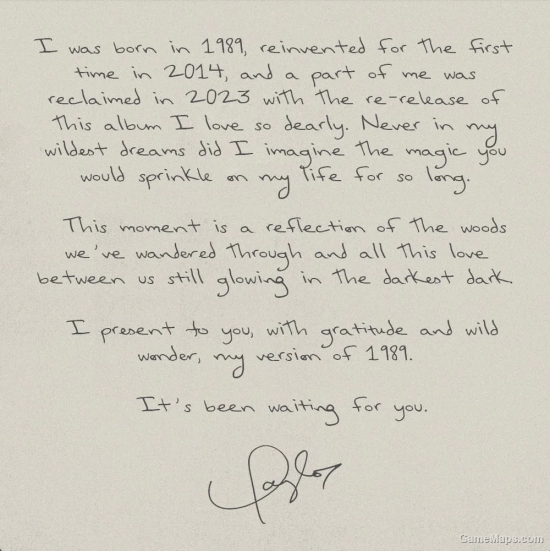 I was born in 1989, reinvented for the first
time in 2014, and a part of me was
reclaimed in 2023 with the re-release of
this album I love so dearly. Never in my
wildest dreams did I imagine the magic you
would sprinkle on my life for so long.
This moment is a reflection of the woods
we've wandered through and all this love
between us still glowing in the darkest dark.
I present to you, with gratitude and wild
wonder, my version of 1989.
It's been waiting for you.
Taylor
GameMaps.com